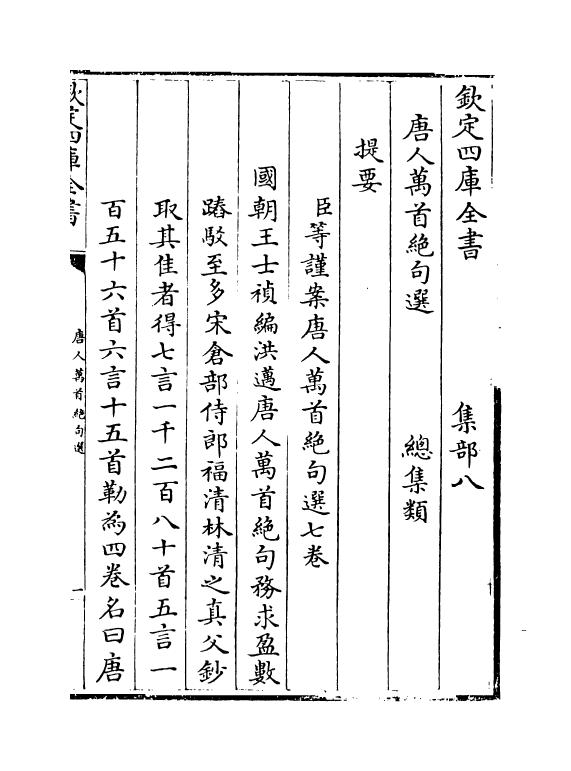 欽定四庫全書　集部八
唐人萬首絶句選　總集類
提要
臣等謹案唐人萬首絶句選七卷
國朝王士禎編洪邁唐人萬首絶句務求盈數
踳駁至多宋倉部侍郎福清林清之真父鈔
取其佳者得七言一千二百八十首五言一
百五十六首六言十五首勒為四卷名曰唐
欽定四庫全書
唐人萬首絶句選
一